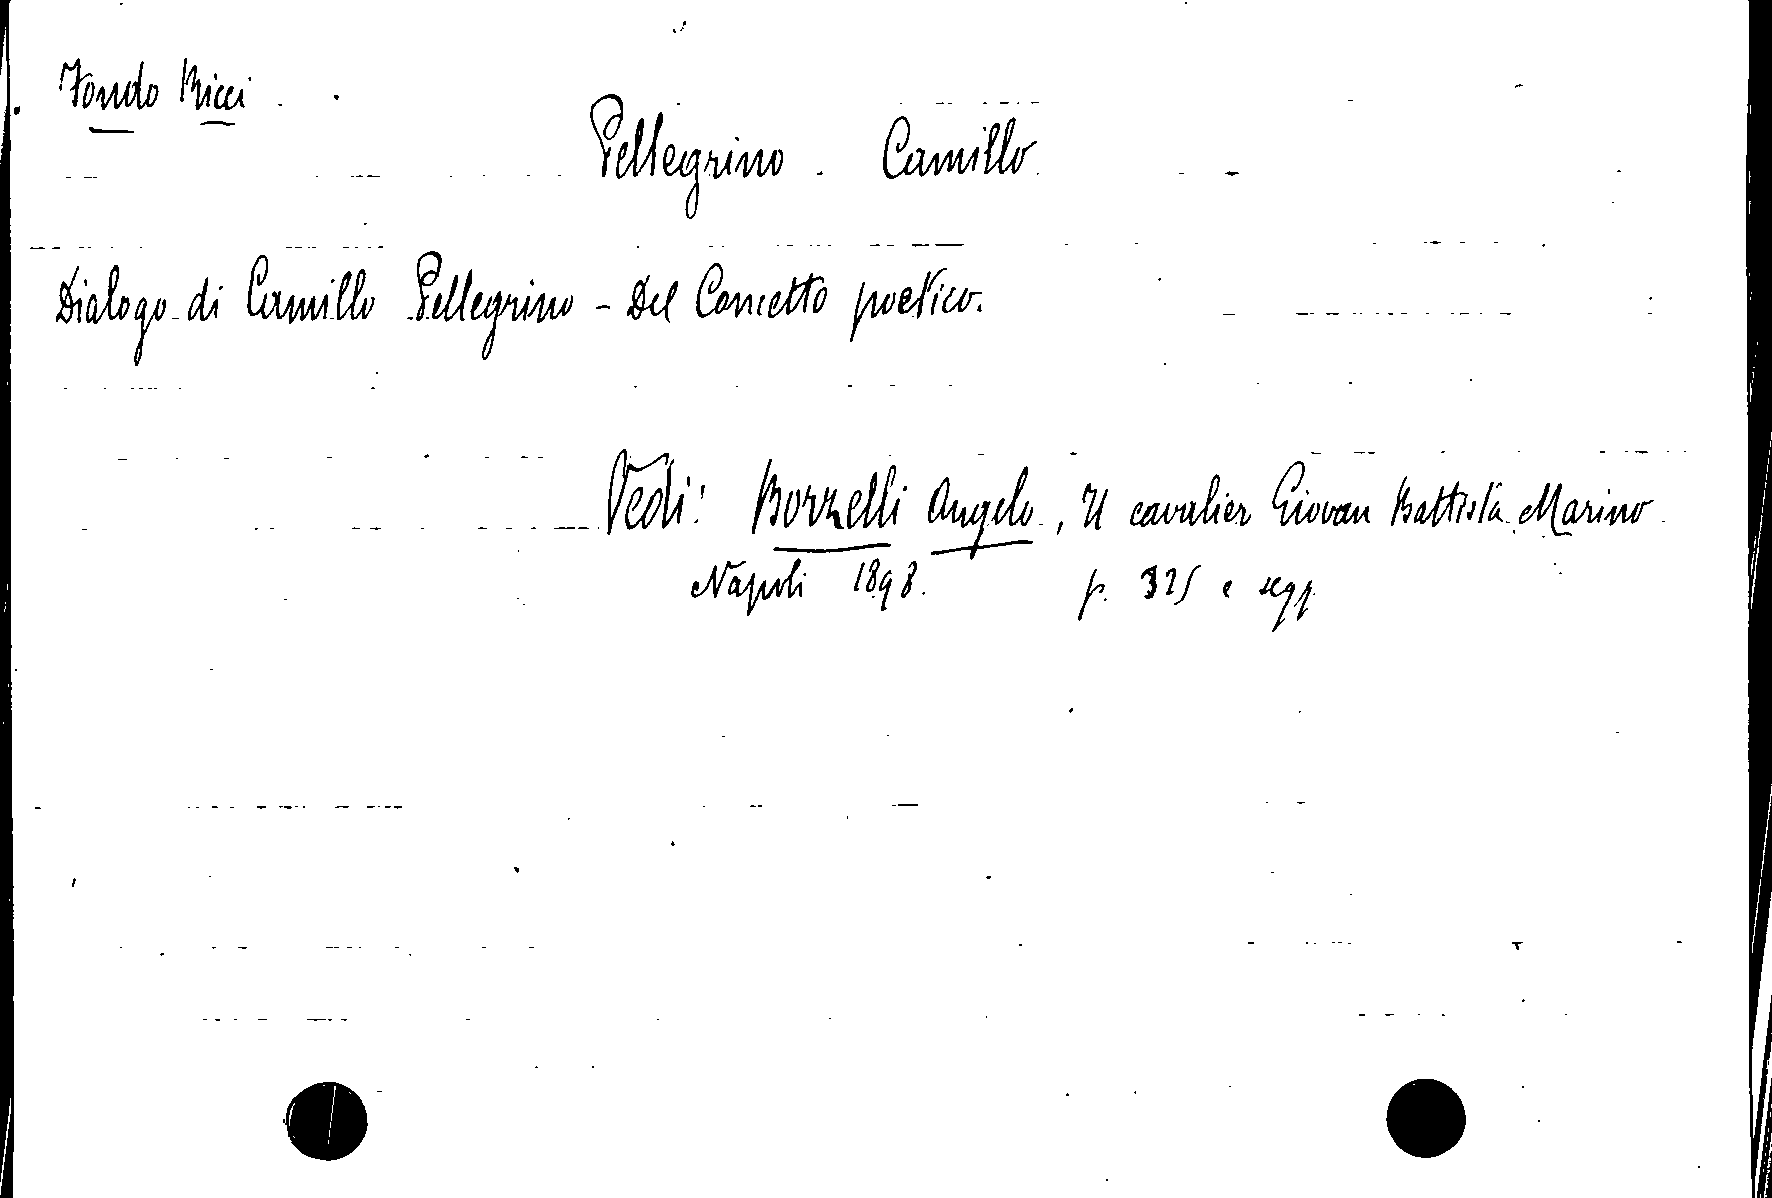 Fondo Ricci
Pellegrino. Camillo.
Dialogo di Camillo Pellegrino - Del Concetto poetico.
Vedi: Borzelli Angelo, Il cavalier Giovan Battista Marino
Napoli 1898. p. 325 e segg